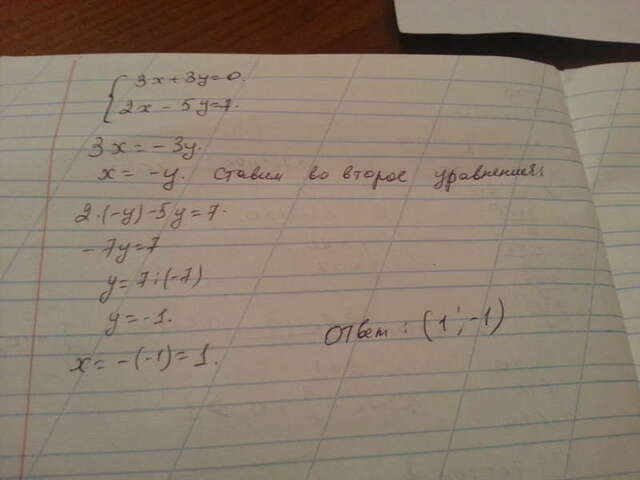 { 3x + 3y = 0.
2x - 5y = 7.
3x = - 3y.
x = -y. ставим во второе уравнение:
2·(-y) - 5y = 7.
- 7y = 7
y = 7 : (-7)
y = -1.
x = - (-1) = 1.
Ответ : (1 ; -1)